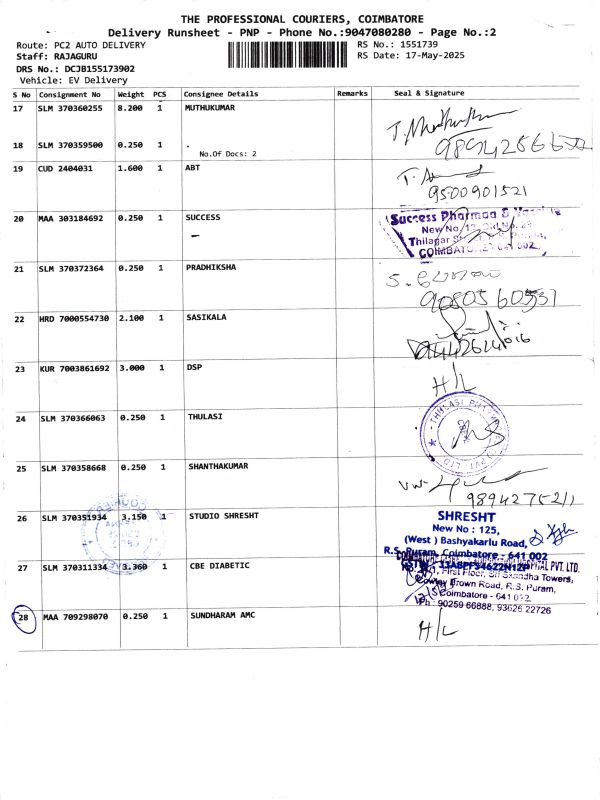 THE PROFESSIONAL COURIERS, COIMBATORE
Delivery Runsheet - PNP - Phone No.:9047080280 - Page No.:2
Route: PC2 AUTO DELIVERY
RS No.: 1551739
Staff: RAJAGURU
RS Date: 17-May-2025
DRS No.: DCJB155173902
Vehicle: EV Delivery
S No Consignment No Weight PCS Consignee Details Remarks Seal & Signature
17 SLM 370360255 8.200 1 MUTHUKUMAR
18 SLM 370359500 0.250 1 .
No.Of Docs: 2
19 CUD 2404031 1.600 1 ABT
9500901521
20 MAA 303184692 0.250 1 SUCCESS
Success Pharmaa &
New No
Thilagar
COIMBATORE
21 SLM 370372364 0.250 1 PRADHIKSHA
9080560531
22 HRD 7000554730 2.100 1 SASIKALA
23 KUR 7003861692 3.000 1 DSP
H/L
24 SLM 370366063 0.250 1 THULASI
25 SLM 370358668 0.250 1 SHANTHAKUMAR
26 SLM 370351934 3.150 1 STUDIO SHRESHT
SHRESHT
New No : 125,
(West ) Bashyakarlu Road,
R.S. Puram, Coimbatore - 641 002
27 SLM 370311334 3.360 1 CBE DIABETIC
First Floor, Sri Skandha Towers,
Cowley Brown Road, R.S. Puram,
Coimbatore - 641 002.
Ph : 90259 66888, 93626 22726
28 MAA 709298070 0.250 1 SUNDHARAM AMC
H/L